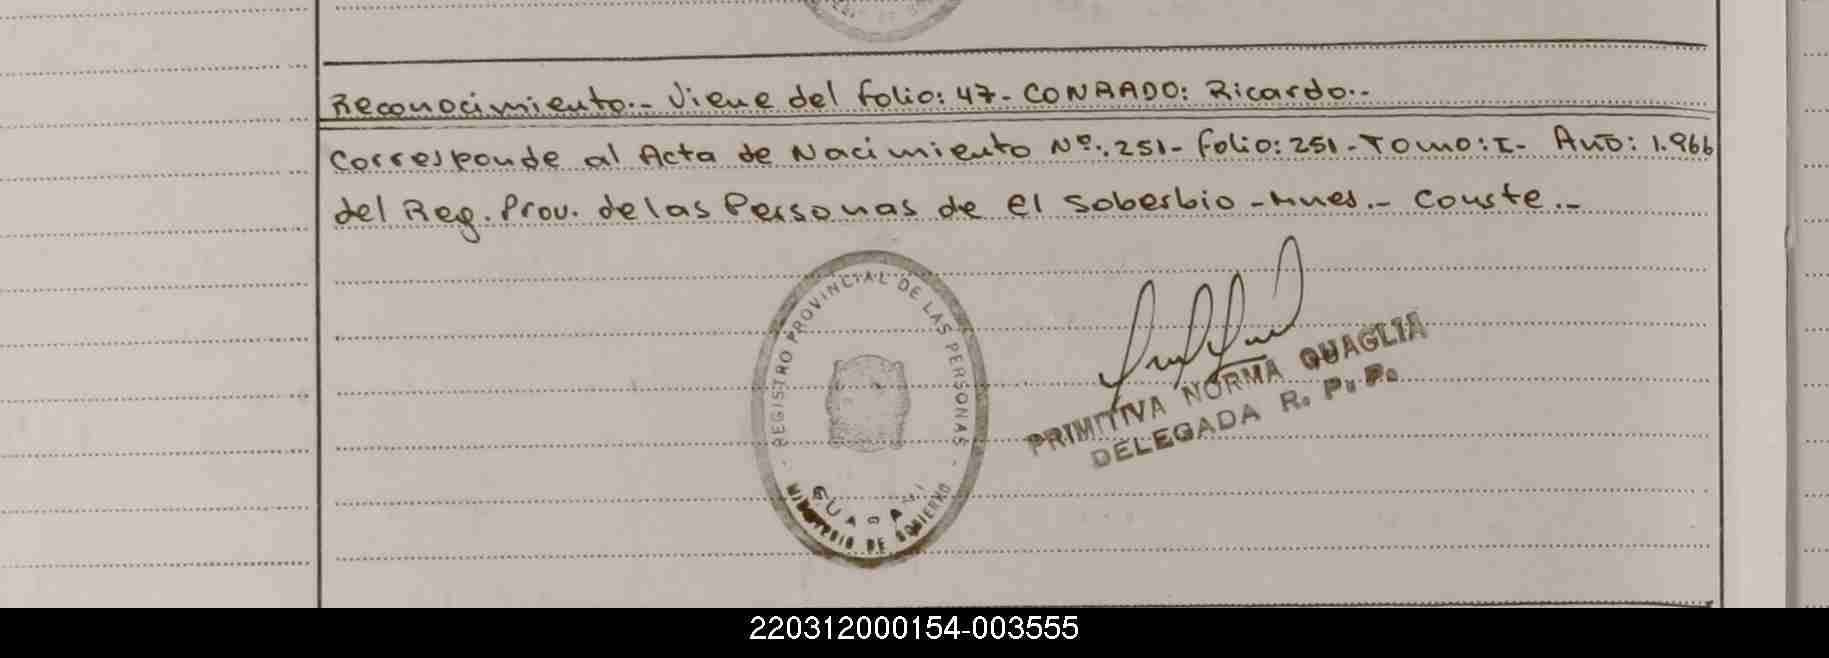 Reconocimiento.- Viene del folio: 47- CONRADO: Ricardo.-
Corresponde al Acta de Nacimiento Nº: 251- folio: 251- Tomo: I- Año: 1.966
del Reg. Prov. de las Personas de El Soberbio -Mnes.- Conste.-
REGISTRO PROVINCIAL DE LAS PERSONAS
GUARANI
MINISTERIO DE GOBIERNO
PRIMITIVA NORMA QUAGLIA
DELEGADA R. P. P.
220312000154-003555